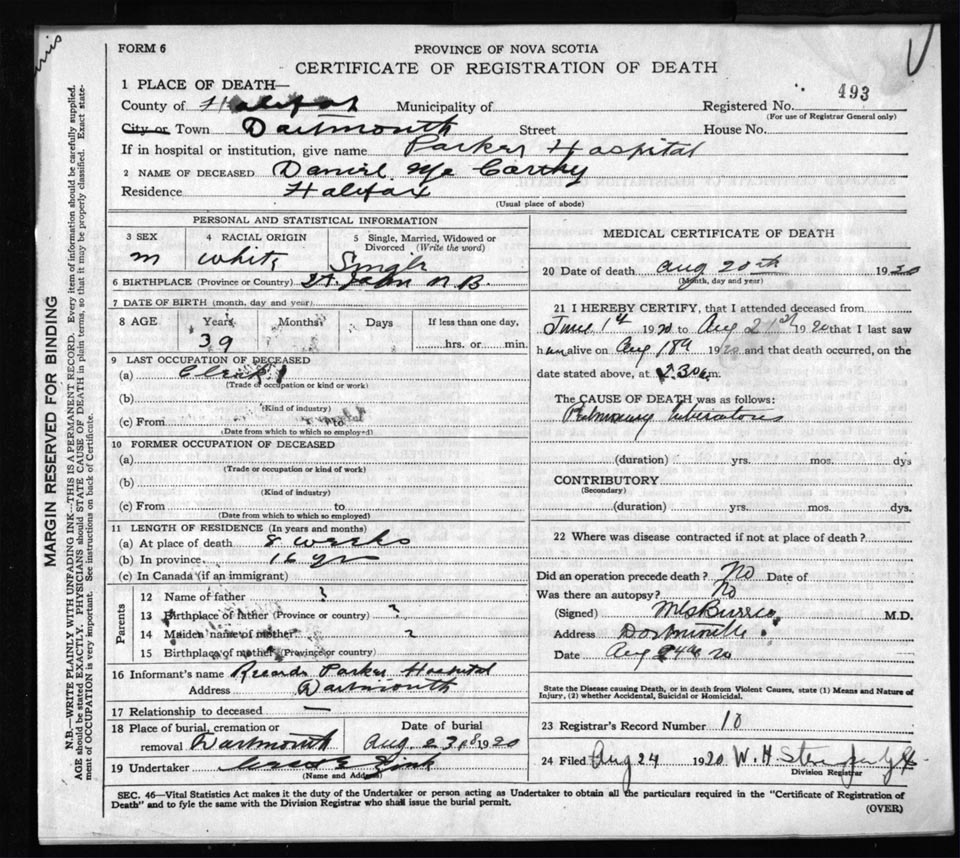 FORM 6
PROVINCE OF NOVA SCOTIA
CERTIFICATE OF REGISTRATION OF DEATH
MARGIN RESERVED FOR BINDING
N.B.—WRITE PLAINLY WITH UNFADING INK—THIS IS A PERMANENT RECORD. Every item of information should be carefully supplied.
AGE should be stated EXACTLY. PHYSICIANS should STATE CAUSE OF DEATH in plain terms, so that it may be properly classified. Exact state-
ment of OCCUPATION is very important. See instructions on back of Certificate.
1 PLACE OF DEATH—
493
County of Halifax Municipality of Registered No.
(For use of Registrar General only)
City or Town Dartmouth Street House No.
If in hospital or institution, give name Parker Hospital
2 NAME OF DECEASED Daniel Mc Carthy
Residence Halifax
(Usual place of abode)
PERSONAL AND STATISTICAL INFORMATION
3 SEX 4 RACIAL ORIGIN 5 Single, Married, Widowed or
Divorced (Write the word)
m White Single
6 BIRTHPLACE (Province or Country) St. John N.B.
7 DATE OF BIRTH (month, day and year)
8 AGE Years Months Days If less than one day,
39 hrs. or min.
9 LAST OCCUPATION OF DECEASED
(a) Clerk
(Trade of occupation or kind or work)
(b)
(Kind of industry)
(c) From to
(Date from which to which so employed)
10 FORMER OCCUPATION OF DECEASED
(a)
(Trade or occupation or kind of work)
(b)
(Kind of industry)
(c) From to
(Date from which to which so employed)
11 LENGTH OF RESIDENCE (In years and months)
(a) At place of death 8 weeks
(b) In province 16 yrs
(c) In Canada (if an immigrant)
Parents
12 Name of father ?
13 Birthplace of father (Province or country) ?
14 Maiden name of mother ?
15 Birthplace of mother (Province or country)
16 Informant's name Records Parker Hospital
Address Dartmouth
17 Relationship to deceased —
18 Place of burial, cremation or Date of burial
removal Dartmouth Aug 23rd 1920
19 Undertaker Zink
(Name and Address)
MEDICAL CERTIFICATE OF DEATH
20 Date of death Aug 20th 1920
(Month, day and year)
21 I HEREBY CERTIFY, that I attended deceased from
June 1st 1920 to Aug 21st 1920 that I last saw
him alive on Aug 18th 1920 and that death occurred, on the
date stated above, at 2.30 a.m.
The CAUSE OF DEATH was as follows:
Pulmonary Tuberculosis
(duration) yrs. mos. dys
CONTRIBUTORY
(Secondary)
(duration) yrs. mos. dys.
22 Where was disease contracted if not at place of death?
Did an operation precede death? No Date of
Was there an autopsy? No
(Signed) M.D.
Address Dartmouth
Date Aug 24th 20
State the Disease causing Death, or in death from Violent Causes, state (1) Means and Nature of
Injury, (2) whether Accidental, Suicidal or Homicidal.
23 Registrar's Record Number 10
24 Filed Aug 24 1920 W. H.
Division Registrar
SEC. 46—Vital Statistics Act makes it the duty of the Undertaker or person acting as Undertaker to obtain all the particulars required in the "Certificate of Registration of
Death" and to fyle the same with the Division Registrar who shall issue the burial permit.
(OVER)